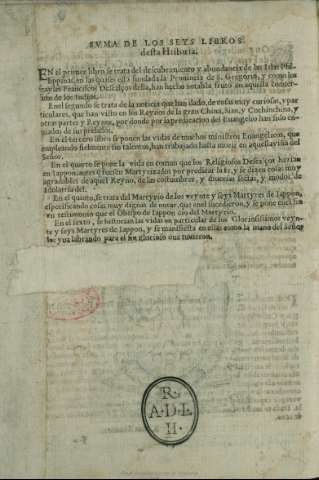 SVMA DE LOS SEYS LIBROS
desta Historia.
EN el primer libro se trata del descubrimiento y abundancia de las Islas Phi-
lippinas, en las quales está fundada la Prouincia de S. Gregorio, y como los
frayles Franciscos Descalços della, han hecho notable fruto en aquella conuer-
sion de los Indios.
En el segundo se trata de la noticia que han dado, de cosas muy curiosas, y par
ticulares, que han visto en los Reynos de la gran China, Sian, y Cochinchina, y
otras partes y Reynos, por donde por la predicacion del Euangelio han sido em-
biados de sus prelados.
En el tercero libro se ponen las vidas de muchos ministros Euangelicos, que
empleando fielmente sus talentos, han trabajado hasta morir en aquella viña del
Señor.
En el quarto se pone la vida en comun que los Religiosos Descalços hazian
en Iappon, antes q fuessen Martyrizados por predicar la fe, y se dizen cosas muy
agradables de aquel Reyno, de las costumbres, y diuersas sectas, y modos de
Idolatria del.
En el quinto, se trata del Martyrio de los veynte y seys Martyres de Iappon,
especificando cosas muy dignas de notar, que en el sucedieron, y se pone
vn testimonio que el Obispo de Iappon dio del Martyrio.
En el sexto, se historian las vidas en particular de los Gloriosissimos veyn-
te y seys Martyres de Iappon, y se manifiesta en ellas como la mano del Señor
los yua labrando para el fin glorioso que tuuieron.
R.
A.D.L.
H.